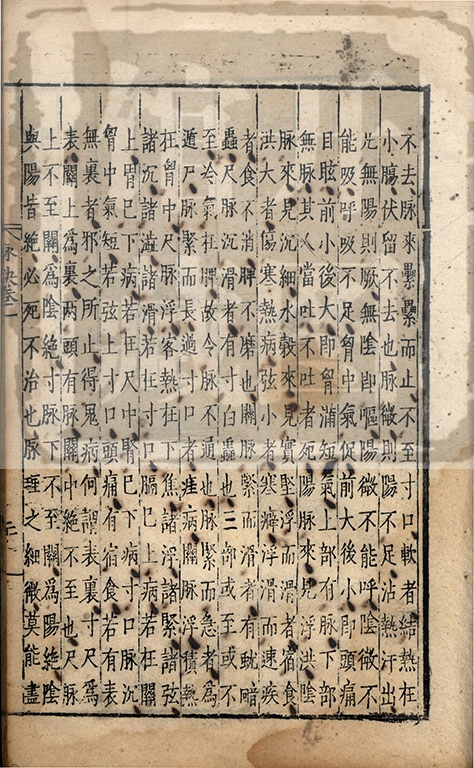 不去脉來纍纍而止不至寸口軟者結熱在
小腸伏留不去也脉微則陽不足沾熱汗出
兌無陽則厥無陰即嘔陽微不能呼陰微不
能吸呼吸不足胷中氣促前大後小即頭痛
目眩前小後大即胷滿短氣上部有脉下部
無脉其人當吐不吐者死陽脉來見浮洪陰
脉來見沉細水穀來見實堅浮而滑者宿食
洪大者傷寒熱病弦小者寒癖浮滑而速疾
者食不消脾不磨也關脉緊而滑者有蚘
蟲尺脉沉滑者有寸白蟲也二部或至或不
至冷氣在脾故令脉不通也脉緊而急者為
遁尸脉緊而長過寸口者疰病關脉浮積熱
在胷中尺脉浮客熱在下焦諸浮諸緊諸弦
諸沉諸澁諸滑若在寸口膈已上病若在關
上胃已下病若在尺中腎已下病寸口脉沉
胷中氣短若弦上寸口頭痛有宿食若有表
無裏者邪之所止得鬼病何謂表裏寸尺為
表關上為裏兩頭有脉關中絶不至也尺脉
上不至關為陰絶寸脉下不至關為陽絶陰
與陽皆絶必死不治也脉理之細微莫能盡